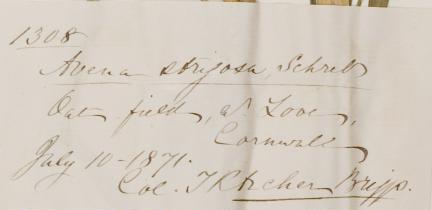 1308
Avena strigosa, Schreb
Oat field, at Looe,
Cornwall
July 10-1871.
Col. T R Archer Briggs.